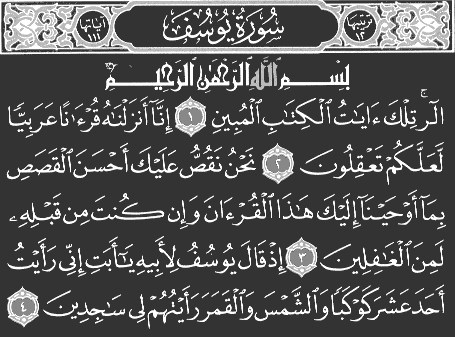 ترتيبها ١٢ سُورَةُ يُوسُفَ آياتها ١١١
بِسْمِ اللَّهِ الرَّحْمَٰنِ الرَّحِيمِ
الٓر ۚ تِلْكَ ءَايَٰتُ الْكِتَٰبِ الْمُبِينِ ١ إِنَّآ أَنزَلْنَٰهُ قُرْءَٰنًا عَرَبِيًّا
لَّعَلَّكُمْ تَعْقِلُونَ ٢ نَحْنُ نَقُصُّ عَلَيْكَ أَحْسَنَ الْقَصَصِ
بِمَآ أَوْحَيْنَآ إِلَيْكَ هَٰذَا الْقُرْءَانَ وَإِن كُنتَ مِن قَبْلِهِۦ
لَمِنَ الْغَٰفِلِينَ ٣ إِذْ قَالَ يُوسُفُ لِأَبِيهِ يَٰٓأَبَتِ إِنِّى رَأَيْتُ
أَحَدَ عَشَرَ كَوْكَبًا وَالشَّمْسَ وَالْقَمَرَ رَأَيْتُهُمْ لِى سَٰجِدِينَ ٤